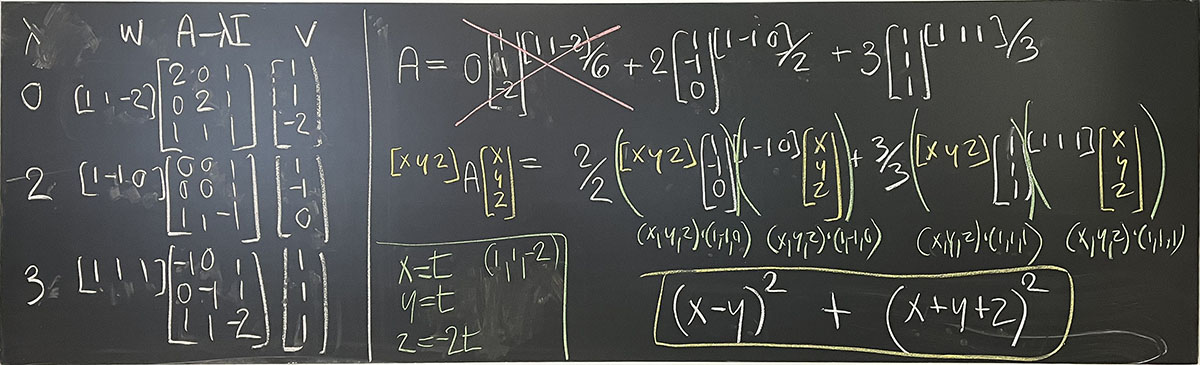 λ w A-λI v
0 [1 1 -2] [2 0 1; 0 2 1; 1 1 1] [1; 1; -2]
2 [1 -1 0] [0 0 1; 0 0 1; 1 1 -1] [1; -1; 0]
3 [1 1 1] [-1 0 1; 0 -1 1; 1 1 -2] [1; 1; 1]
A = 0 [1; 1; -2] [1 1 -2]/6 + 2 [1; -1; 0] [1 -1 0]/2 + 3 [1; 1; 1] [1 1 1]/3
[x y z] A [x; y; z] = 2/2 ([x y z] [1; -1; 0]) ([1 -1 0] [x; y; z]) + 3/3 ([x y z] [1; 1; 1]) ([1 1 1] [x; y; z])
(x,y,z)·(1,-1,0) (x,y,z)·(1,-1,0) (x,y,z)·(1,1,1) (x,y,z)·(1,1,1)
x=t (1,1,-2)
y=t
z=-2t
(x-y)² + (x+y+z)²